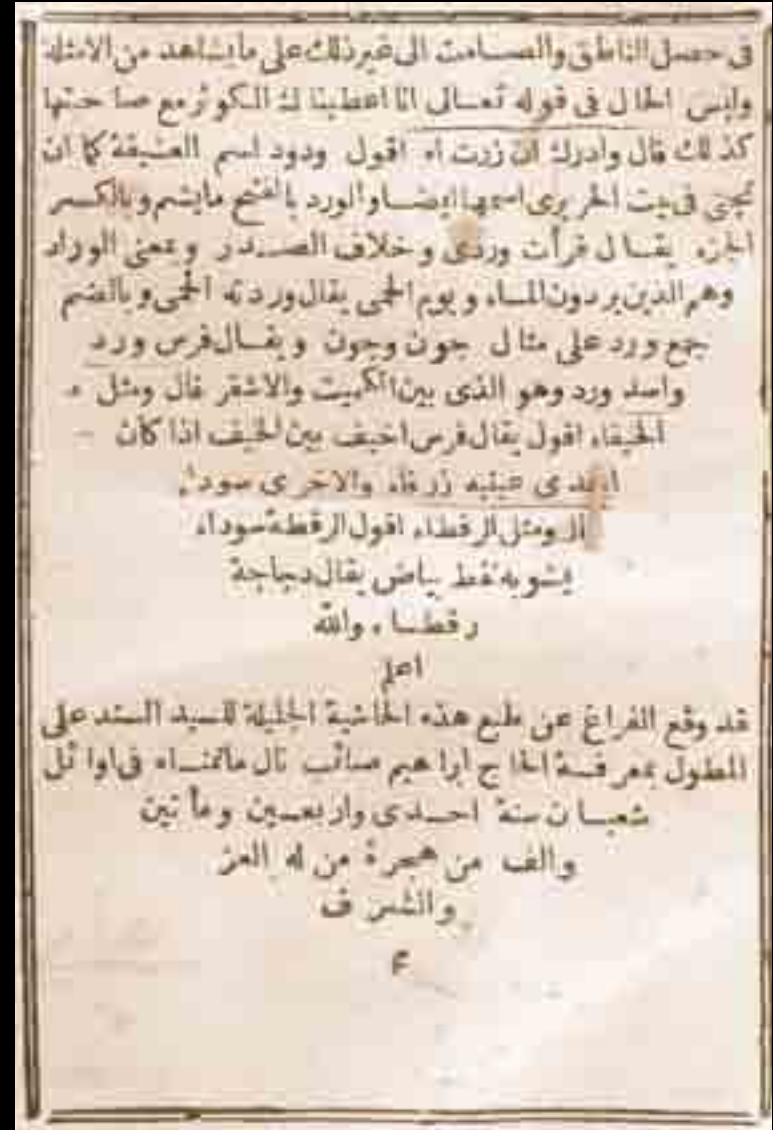 فى حصل الناطق والصامت الى غير ذلك على ما يشاهد من الامثلة
وليس الحال فى قوله تعالى انا اعطيناك الكوثر مع صاحبتها
كذلك قال وادرك ان زرت اه اقول ودود اسم العشيقة كما ان
تجنى فى بيت الحريرى اسمها ايضا والورد بالفتح ما يشم وبالكسر
الجزء يقال قرأت وردى وخلاف الصدر وبمعنى الوراد
وهم الذين يردون الماء ويوم الحمى يقال وردته الحمى وبالضم
جمع ورد على مثال جون وجون ويقال فرس ورد
واسد ورد وهو الذى بين الكميت والاشقر قال ومثل
الخيفاء اقول يقال فرس اخيف بين الخيف اذا كان
احدى عينيه زرقاء والاخرى سوداء
قال ومثل الرقطاء اقول الرقطة سواد
يشوبه نقط بياض يقال دجاجة
رقطاء والله
اعلم
قد وقع الفراغ عن طبع هذه الحاشية الجليلة للسيد السند على
المطول بمعرفة الحاج ابراهيم صائب نال ما تمناه فى اوائل
شعبان سنة احدى واربعين ومأتين
والف من هجرة من له العز
والشرف
م